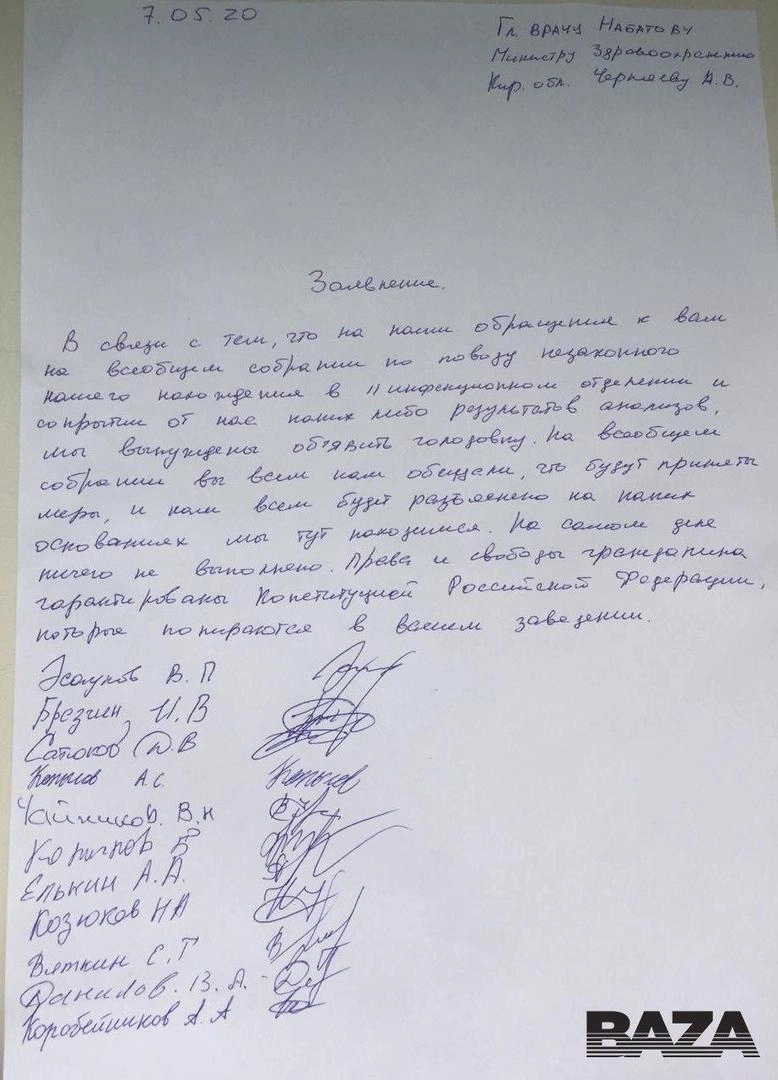 7.05.20
Гл. врачу Набатову
Министру Здравоохранения
Кир. обл. Черняеву А.В.
Заявление.
В связи с тем, что на наши обращения к вам
на всеобщем собрании по поводу незаконного
нашего нахождения в 11 инфекционном отделении и
сокрытии от нас каких либо результатов анализов,
мы вынуждены объявить голодовку. На всеобщем
собрании вы всем нам обещали, что будут приняты
меры, и нам всем будет разъяснено на каких
основаниях мы тут находимся. На самом деле
ничего не выполнено. Права и свободы гражданина
гарантированы Конституцией Российской Федерации,
которые попираются в вашем заведении.
В. П
Брезгин, И. В
Сатюков Д. В
Копысов А.С. Копысов
Чайников. В. Н
Елькин А. А.
Козюков НА
Вяткин С. Г
Данилов. В. А. -
Коробейников А. А
BAZA